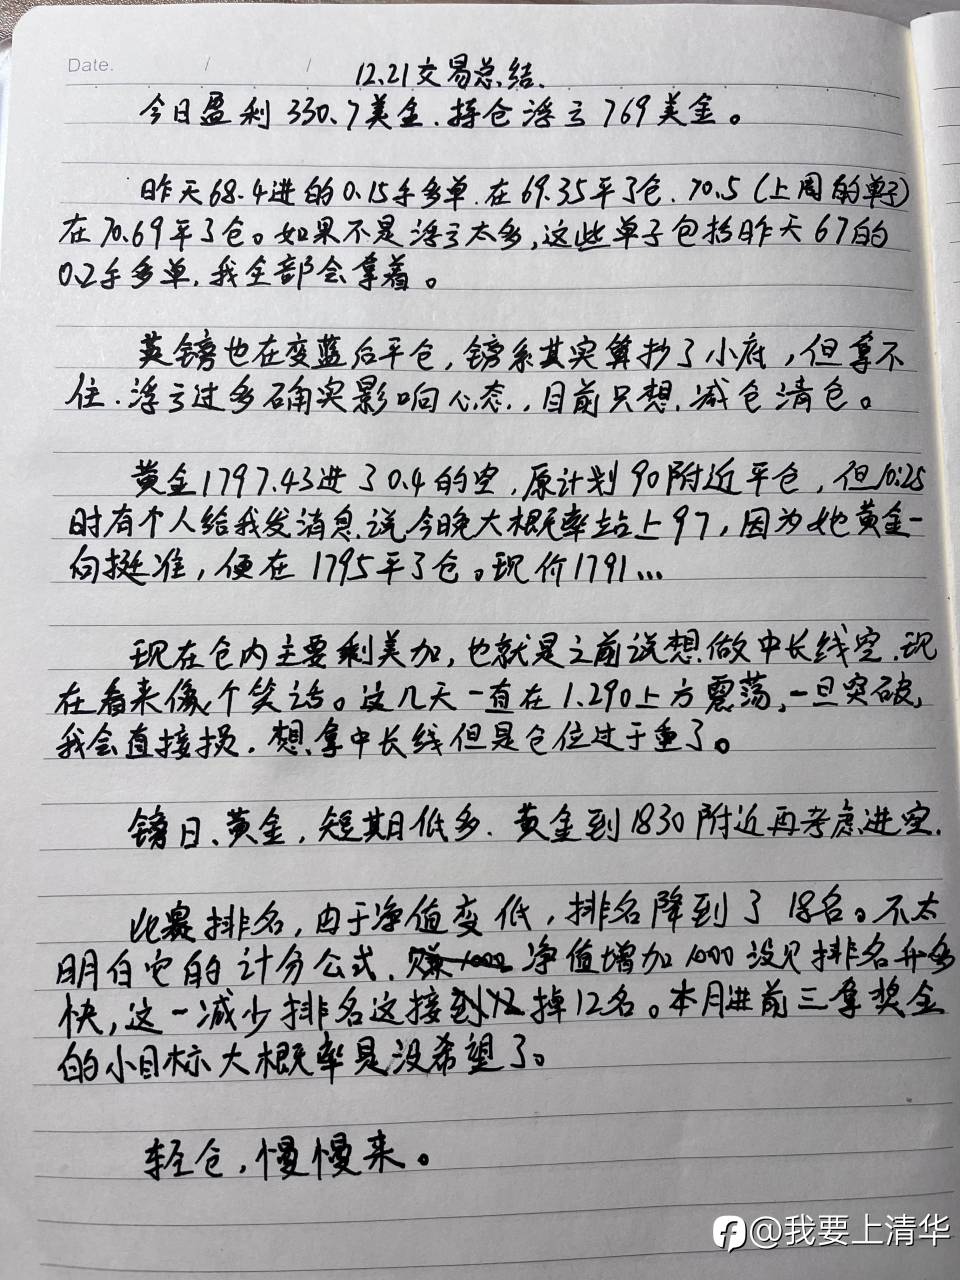 Date. / /
12.21交易总结.
今日盈利330.7美金.持仓浮亏769美金。
昨天68.4进的0.15手多单.在69.35平了仓.70.5(上周的单子)
在70.69平了仓。如果不是浮亏太多,这些单子包括昨天67的
0.2手多单,我全部会拿着。
英镑也在变蓝后平仓,镑系其实算抄了小底,但拿不
住.浮亏过多确实影响心态.,目前只想.减仓清仓。
黄金1797.43进了0.4的空,原计划90附近平仓,但10:25
时有个人给我发消息.说今晚大概率站上97,因为她黄金一
向挺准,便在1795平了仓。现价1791...
现在仓内主要剩美加,也就是之前说想做中长线空.现
在看来像个笑话。这几天一直在1.290上方震荡,一旦突破,
我会直接损.想拿中长线但是仓位过于重了。
镑日、黄金,短期低多.黄金到1830附近再考虑进空.
比赛排名,由于净值变低,排名降到了18名。不太
明白它的计分公式.赚1000净值增加1000没见排名升多
快,这一减少排名这接到12掉12名。本月进前三拿奖金
的小目标大概率是没希望了。
轻仓,慢慢来。
@我要上清华